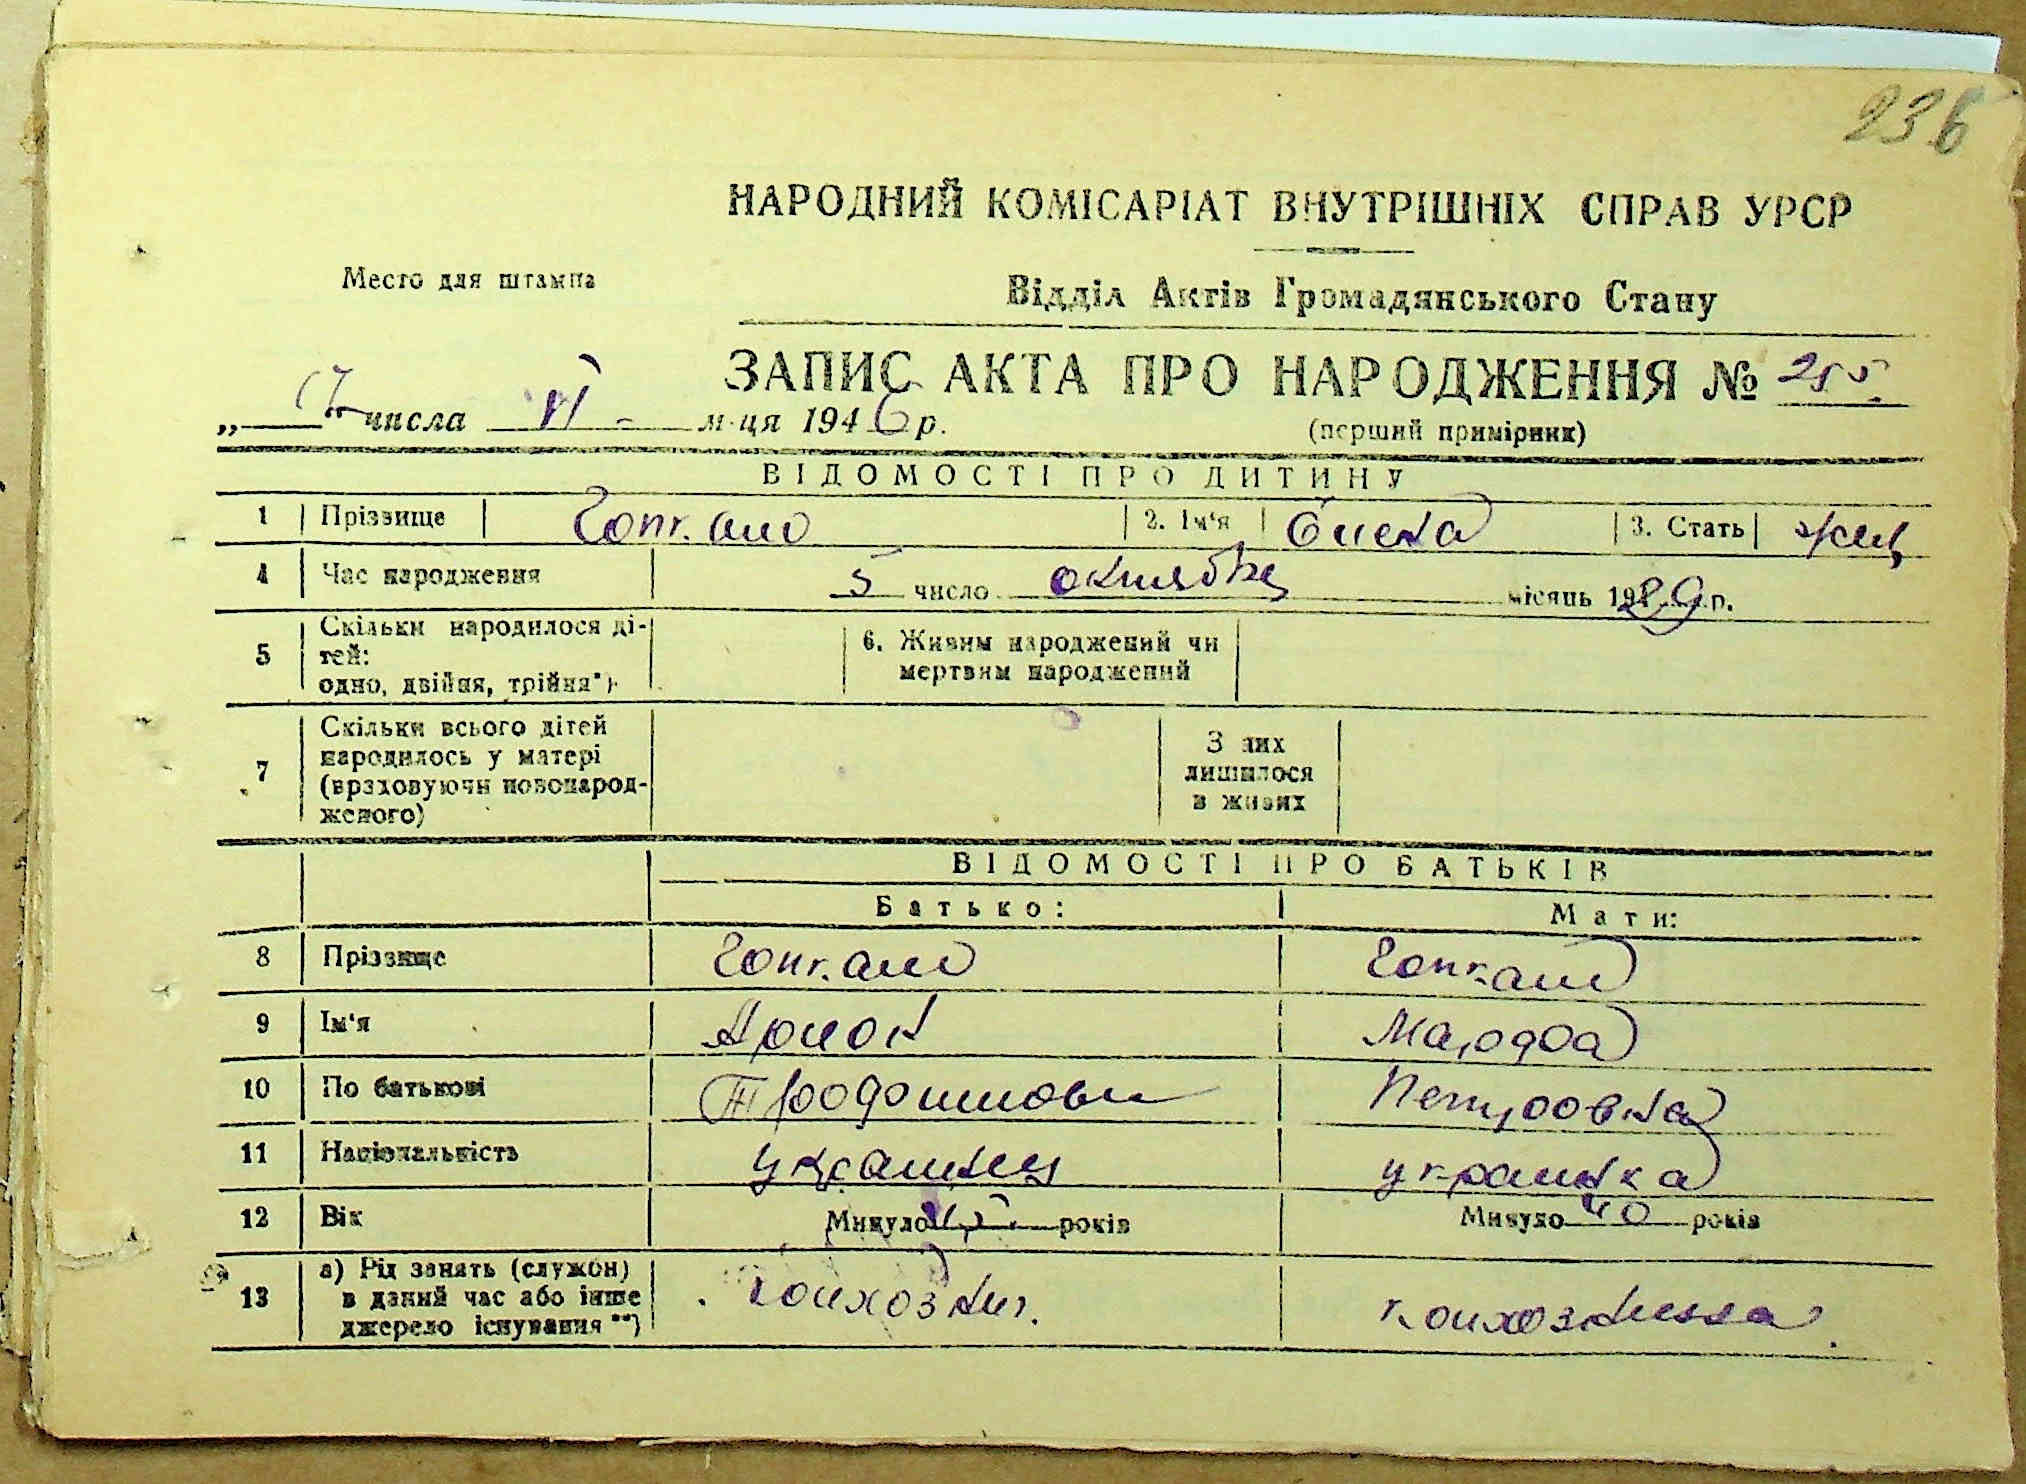 236
НАРОДНИЙ КОМІСАРІАТ ВНУТРІШНІХ СПРАВ УРСР
Место для штампа
Відділ Актів Громадянського Стану
ЗАПИС АКТА ПРО НАРОДЖЕННЯ № 255.
„17“ числа VI м-ця 1946 р.
(перший примірник)
ВІДОМОСТІ ПРО ДИТИНУ
1 Прізвище 2. Ім'я 3. Стать жен
4 Час народження 5 число октября місяць 1929 р.
5 Скільки народилося ді-
тей:
одно, двійня, трійня*)
6. Живим народжений чи
мертвим народжений
7 Скільки всього дітей
народилось у матері
(враховуючи новонарод-
женого)
З них
лишилося
в живих
ВІДОМОСТІ ПРО БАТЬКІВ
Батько: Мати:
8 Прізвище
9 Ім'я
10 По батькові Петровна
11 Національність украинец украинка
12 Вік Минуло 45 років Минуло 40 років
13 а) Рід занять (служби)
в даний час або інше
джерело існування **)
колхозник. колхозница